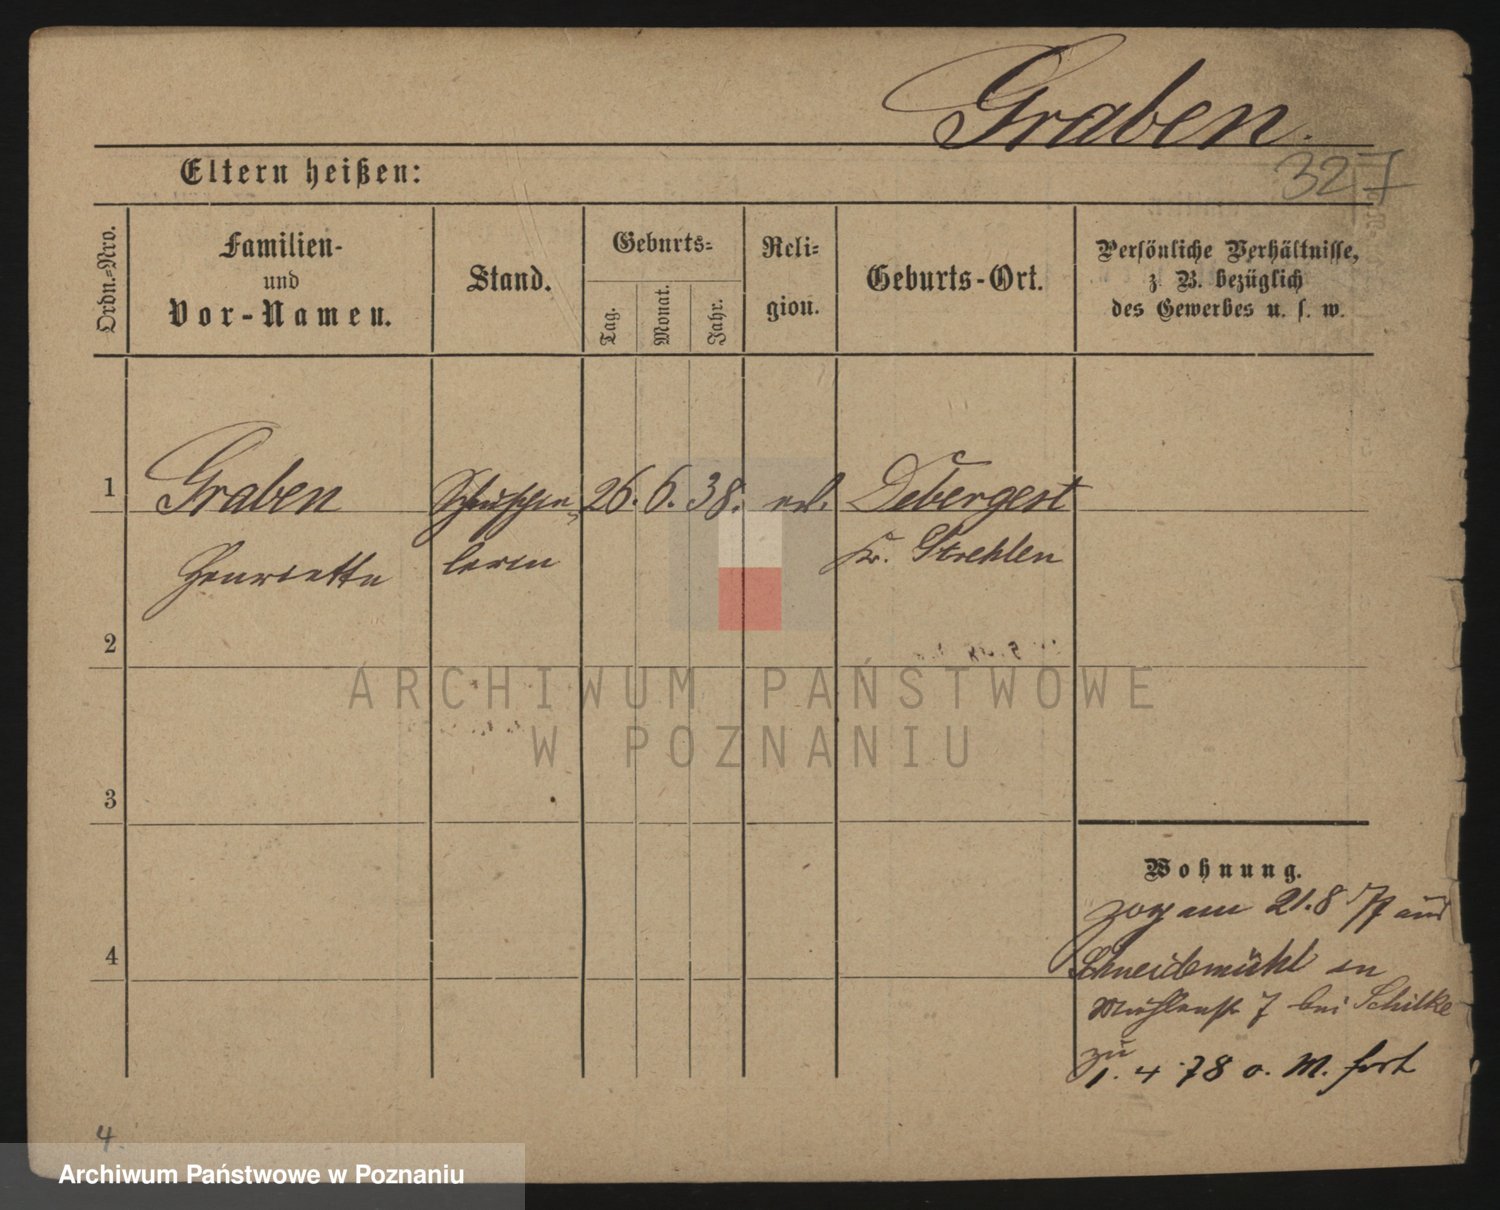 Graben.
327
Eltern heißen:
Ordn.=Nro.
Familien-
und
Vor-Namen.
Stand.
Geburts=
Tag.
Monat.
Jahr.
Reli=
gion.
Geburts-Ort.
Persönliche Verhältnisse,
z. B. bezüglich
des Gewerbes u. s. w.
1 Graben 26. 6. 38. Debergest
Henriette lerin Kr. Strehlen
2
3
4
ARCHIWUM PAŃSTWOWE
W POZNANIU
Wohnung.
zog am 21.8 77 aus
Schneidemühl an
Mühlenstr 7 bei Schilke
zu
1. 4 78 o. M. fort
4.
Archiwum Państwowe w Poznaniu